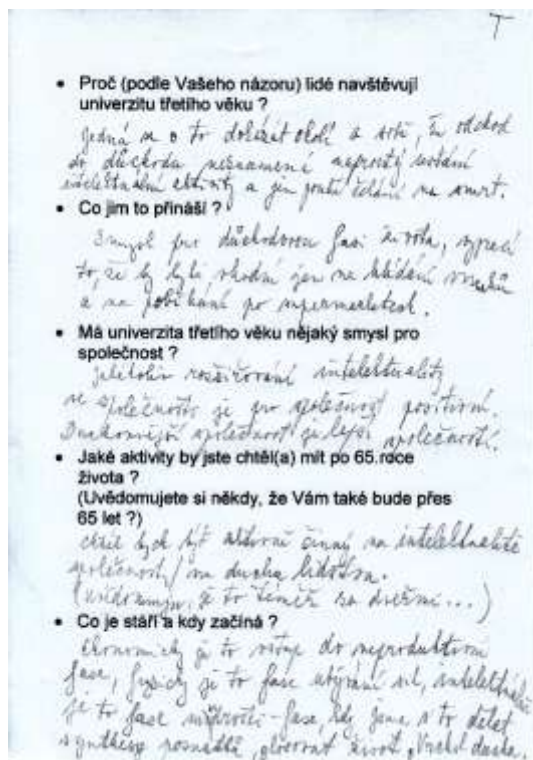 T
• Proč (podle Vašeho názoru) lidé navštěvují
univerzitu třetího věku ?
Jedná se o to dokázat okolí a sobě, že odchod
do důchodu neznamená naprostý
intelektuální aktivity a jen pouhé čekání na smrt.
• Co jim to přináší ?
Smysl pro důchodovou fasi života,
to, že by byli vhodní jen na hlídání vnuků
a na pobíhání po supermarketech.
• Má univerzita třetího věku nějaký smysl pro
společnost ?
Jakékoliv rozšiřování intelektuality
ve společnosti je pro společnost positivní.
společnost je lepší společností.
• Jaké aktivity by jste chtěl(a) mít po 65.roce
života ?
(Uvědomujete si někdy, že Vám také bude přes
65 let ?)
chtěl bych být aktivně činný na intelektualitě
společnosti / na duchu lidstva.
(uvědomuju, je to téměř za dveřmi...)
• Co je stáří a kdy začíná ?
Ekonomicky je to vstup do neproduktivní
fase, fysicky je to fase ubývání sil, intelektuálně
je to fase moudrosti - fase, kdy jsme s to dělat
synthesy posnatků, život,